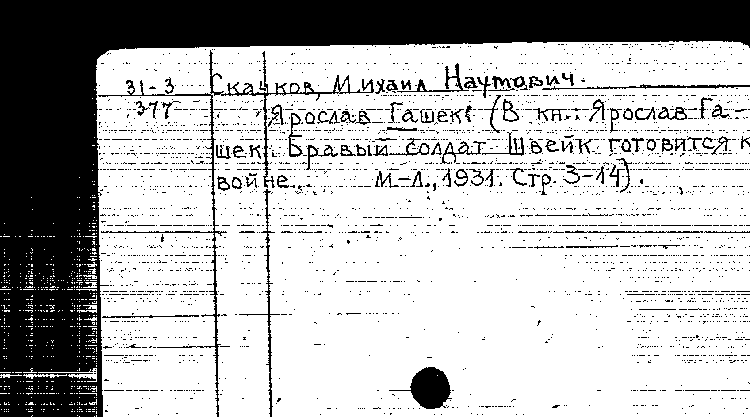 31-3 Скачков, Михаил Наумович.
377 Ярослав Гашек. (В кн.: Ярослав Га-
шек. Бравый солдат Швейк готовится к
войне... М.-Л., 1931. Стр. 3-14).